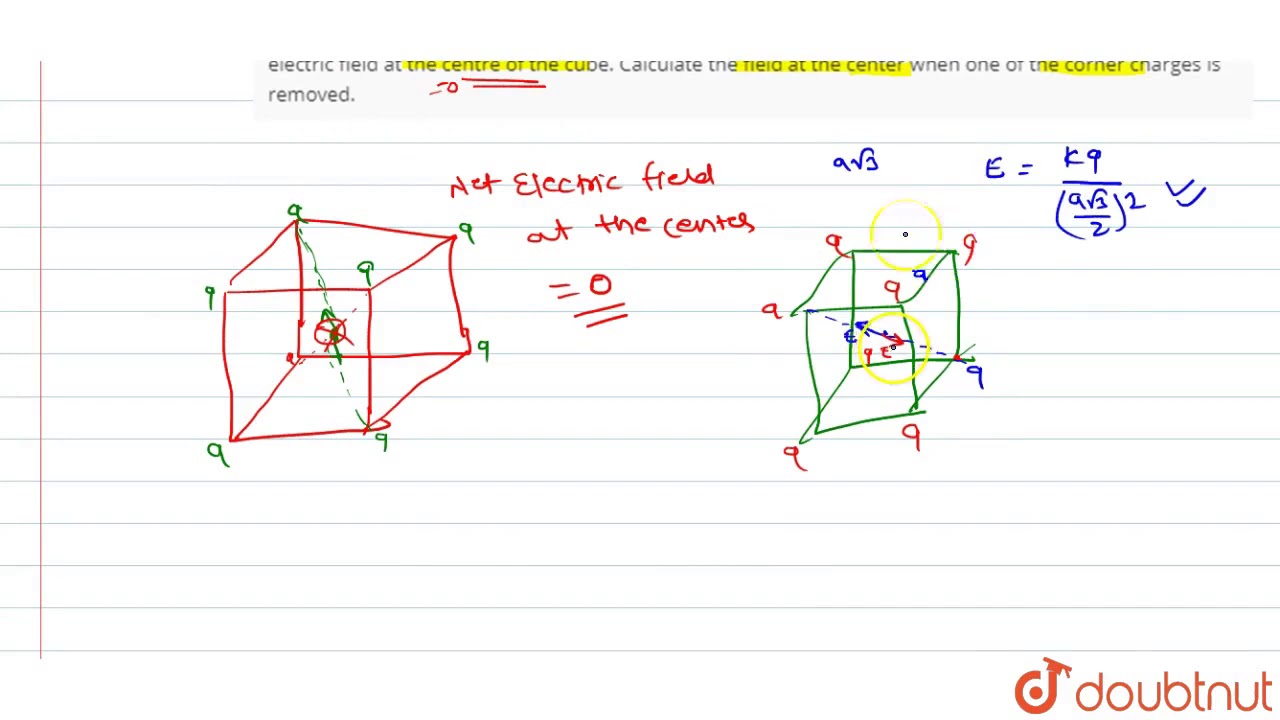 electric field at the centre of the cube. Calculate the field at the center when one of the corner charges is
removed.
=0
Net Electric field
at the center
= 0
a√3
E = kq
(a√3/2)2
q
q
q
q
q
q
q
q
q
q
q
a
q
q
E
q
E
q
q
q
doubtnut